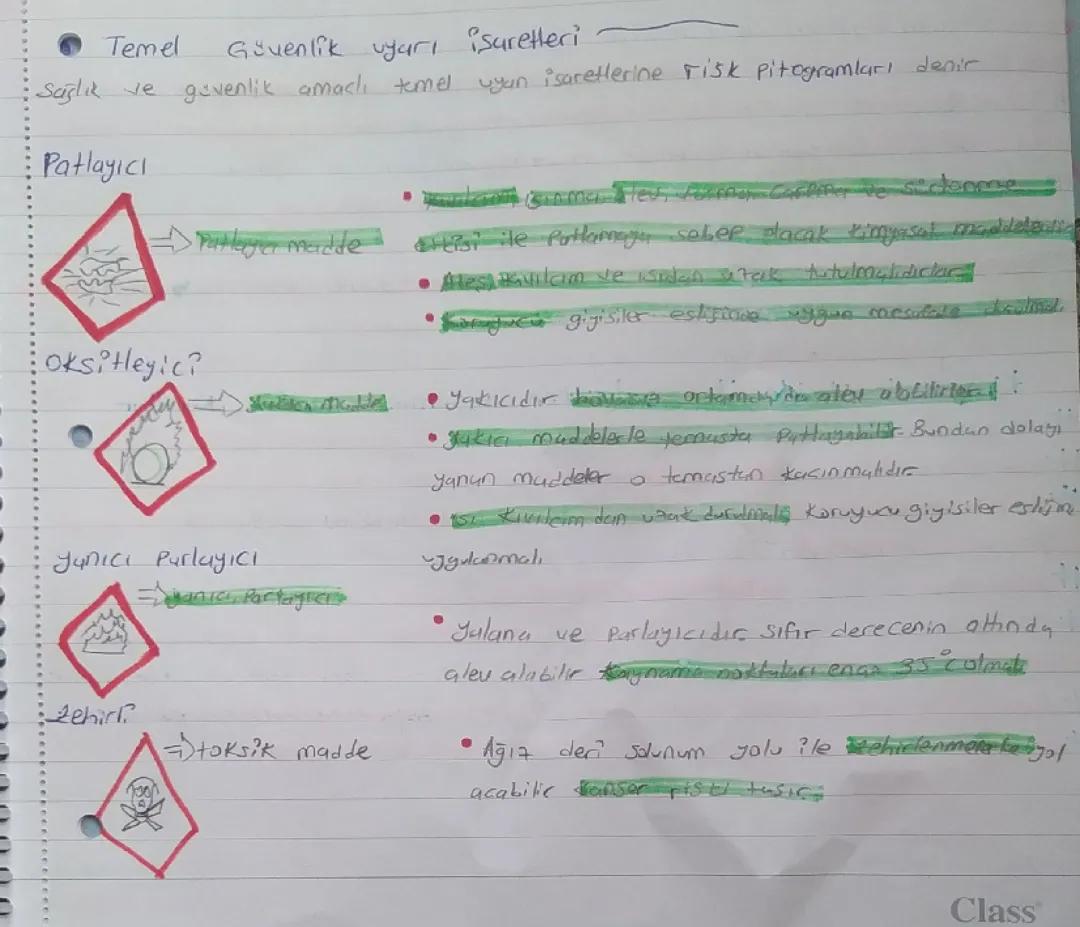 Temel Güvenlik uyarı işaretleri
Sağlık ve güvenlik amaçlı temel uyarı işaretlerine risk pitogramları denir
Patlayıcı
Patlayıcı madde
ısınma, Alev, Çarpma ve sürtünme
etkisi ile Patlamaya sebep olacak kimyasal maddelerdir
Ateş, kıvılcım ve ısıdan uzak tutulmalıdırlar
Koruyucu giyisiler eşliğinde uygun mesafede durulmalı
Oksitleyici
Yakıcı madde
Yakıcıdır havasız ortamda da alev alabilirler
Yakıcı maddelerle temasta Patlayabilir. Bundan dolayı
yanan maddeler o temastan kaçınmalıdır
ısı kıvılcımdan uzak durulmalı koruyucu giyisiler
uygulanmalı
Yanıcı Parlayıcı
yanıcı, Parlayıcı
Yalana ve Parlayıcıdır sıfır derecenin altında
alev alabilir kaynama noktaları enaz 35°C olmalı
Zehirli
toksik madde
Ağız deri solunum yolu ile yol
açabilir kanser riski taşır
Class